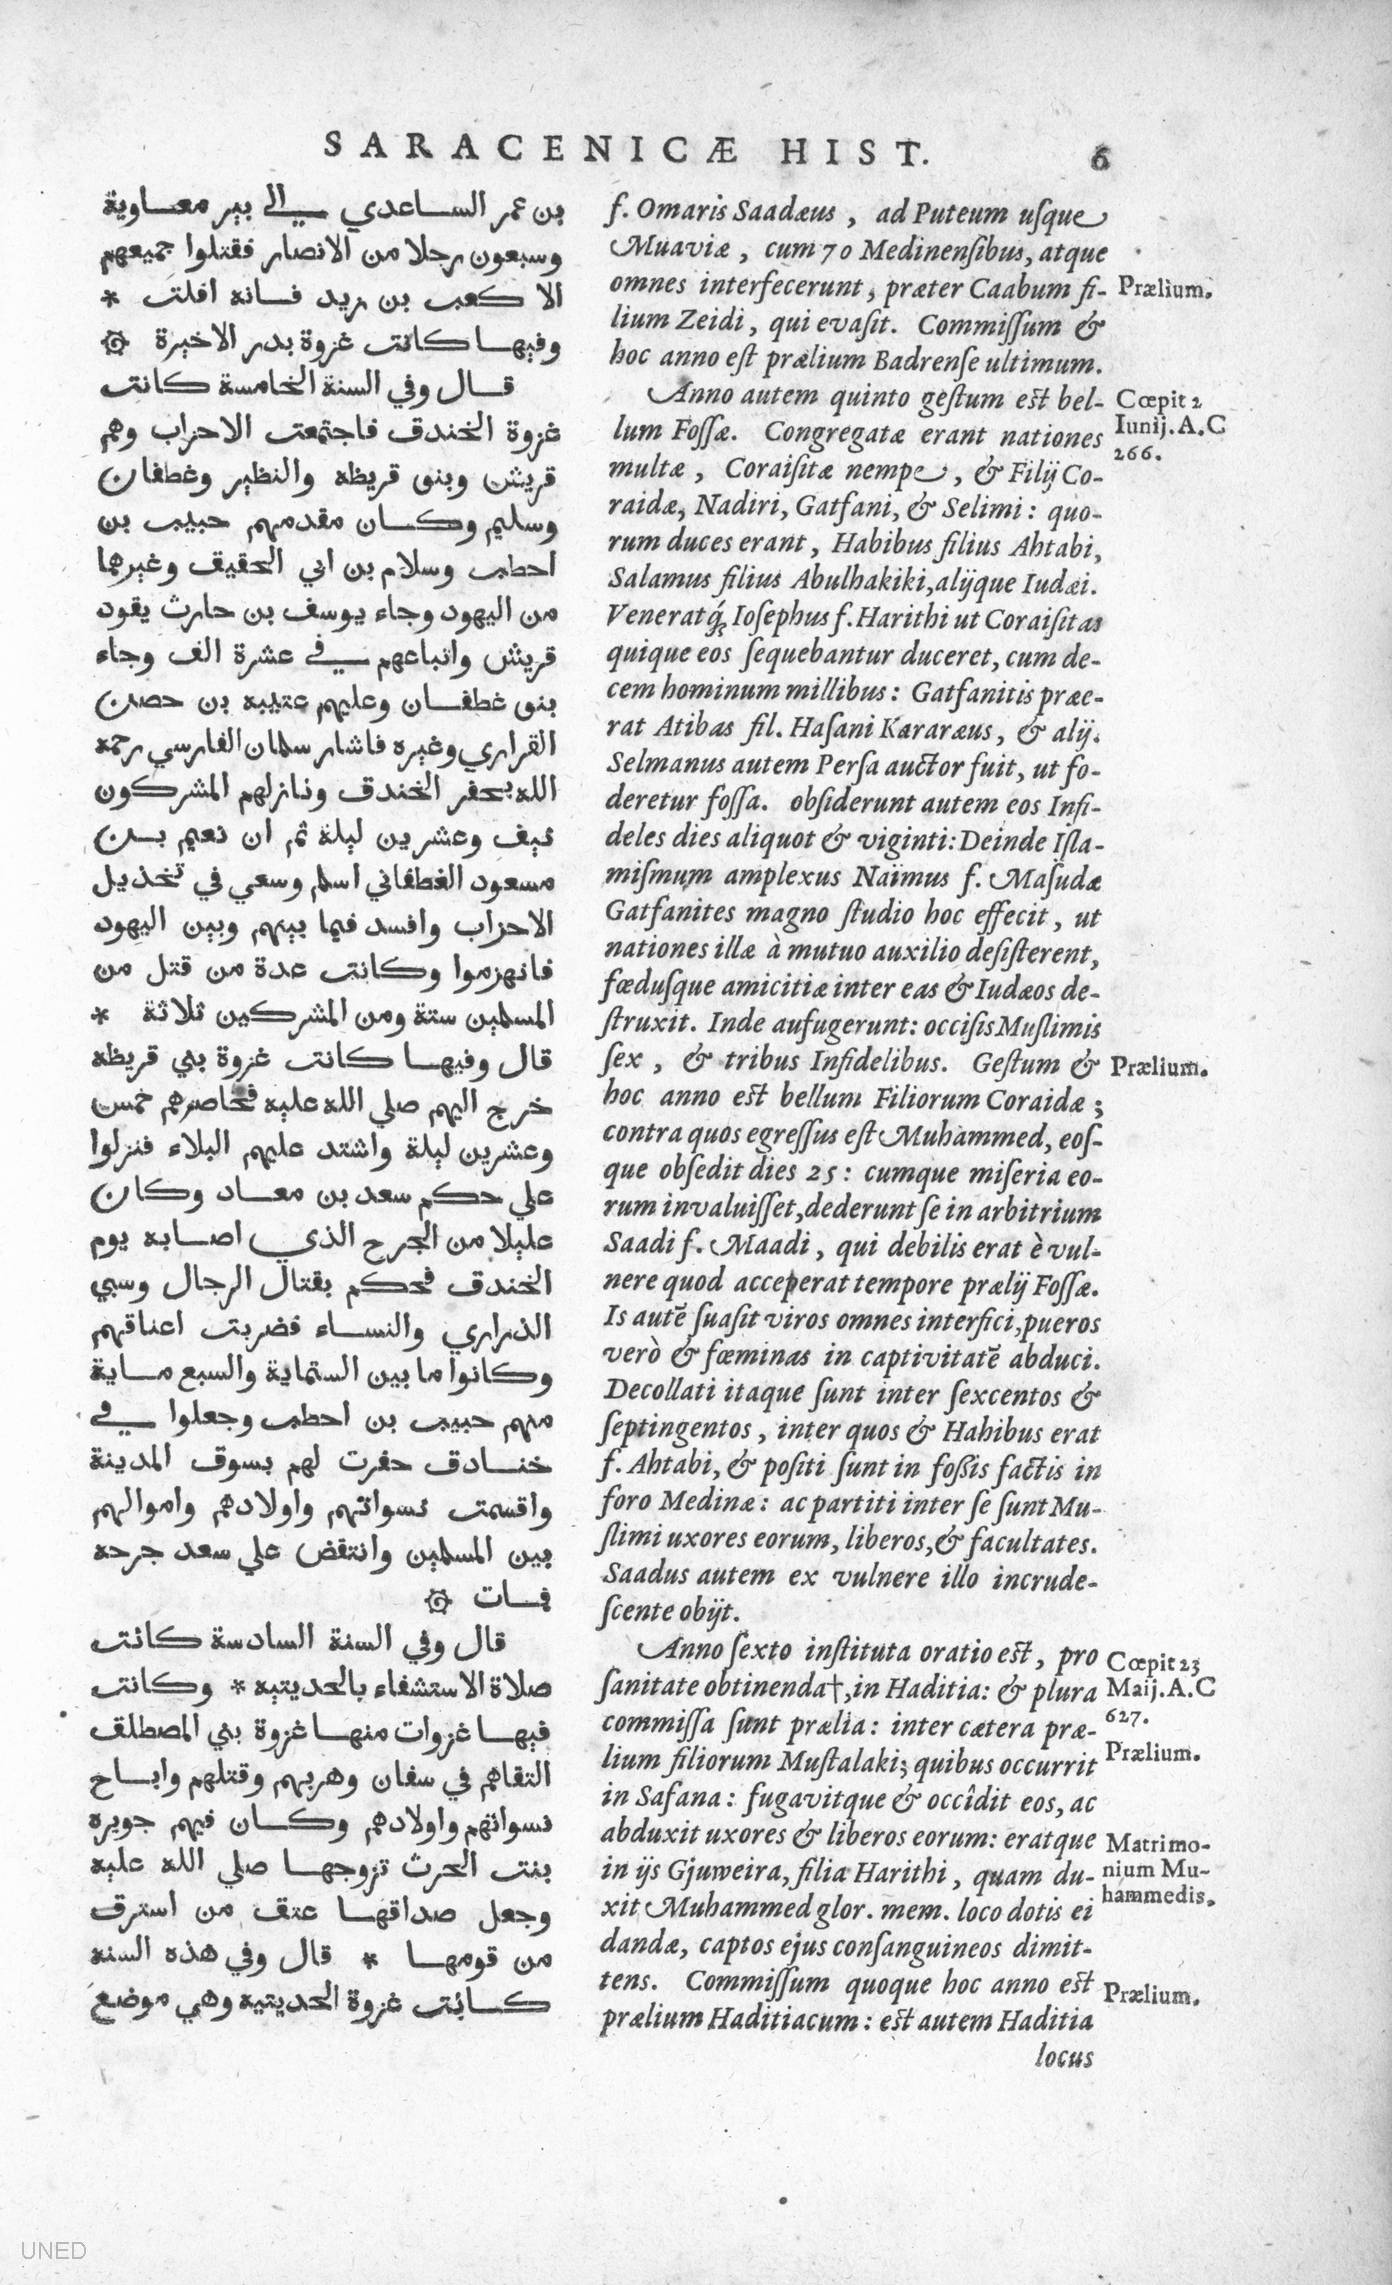 SARACENICÆ HIST. 6
بن عمر الساعدي الي بير معاوية
وسبعون رجلا من الانصار فقتلوا جميعهم
الا كعب بن زيد فانه افلت *
وفيها كانت غزوة بدر الاخيرة
قال وفي السنة الخامسة كانت
غزوة الخندق فاجتمعت الاحزاب وهم
قريش وبنو قريظه والنظير وغطفان
وسليم وكان مقدمهم حبيب بن
احطب وسلام بن ابي الحقيق وغيرهما
من اليهود وجاء يوسف بن حارث يقود
قريش واتباعهم في عشرة الف وجاء
بنو غطفان وعليهم عتيبه بن حصن
القراري وغيره فاشار سلمان الفارسي رحمه
الله بحفر الخندق ونازلهم المشركون
نيف وعشرين ليلة ثم ان نعيم بن
مسعود الغطفاني اسلم وسعي في تخذيل
الاحزاب وافسد فيما بينهم وبين اليهود
فانهزموا وكانت عدة من قتل من
المسلمين ستة ومن المشركين ثلاثة *
قال وفيها كانت غزوة بني قريظه
خرج اليهم صلي الله عليه فحاصرهم خمس
وعشرين ليلة واشتد عليهم البلاء فنزلوا
علي حكم سعد بن معاد وكان
عليلا من الجرح الذي اصابه يوم
الخندق فحكم بقتال الرجال وسبي
الذراري والنساء فضربت اعناقهم
وكانوا ما بين الستماية والسبع ماية
منهم حبيب بن احطب وجعلوا في
خنادق حفرت لهم بسوق المدينة
واقسمت نسوانهم واولادهم واموالهم
بين المسلمين وانتقض علي سعد جرحه
فمات
قال وفي السنة السادسة كانت
صلاة الاستشفاء بالحديتيه * وكانت
فيها غزوات منها غزوة بني المصطلق
التقاهم في سفان وهربهم وقتلهم واباح
نسوانهم واولادهم وكان فيهم جويره
بنت الحرث تزوجها صلي الله عليه
وجعل صداقها عتق من استرق
من قومها * قال وفي هذه السنه
كانت غزوة الحديتيه وهي موضع
f. Omaris Saadæus, ad Puteum usque
Muaviæ, cum 70 Medinensibus, atque
omnes interfecerunt, præter Caabum fi-
lium Zeidi, qui evasit. Commissum &
hoc anno est prælium Badrense ultimum.
Anno autem quinto gestum est bel-
lum Fossæ. Congregatæ erant nationes
multæ, Coraisitæ nempe, & Filij Co-
raidæ, Nadiri, Gatfani, & Selimi: quo-
rum duces erant, Habibus filius Ahtabi,
Salamus filius Abulhakiki, alijque Iudæi.
Veneratq́; Iosephus f. Harithi ut Coraisitas
quique eos sequebantur duceret, cum de-
cem hominum millibus: Gatfanitis præe-
rat Atibas fil. Hasani Kararæus, & alij.
Selmanus autem Persa auctor fuit, ut fo-
deretur fossa. obsiderunt autem eos Infi-
deles dies aliquot & viginti: Deinde Isla-
mismum amplexus Näimus f. Masudæ
Gatfanites magno studio hoc effecit, ut
nationes illæ à mutuo auxilio desisterent,
fœdusque amicitiæ inter eas & Iudæos de-
struxit. Inde aufugerunt: occisis Muslimis
sex, & tribus Infidelibus. Gestum &
hoc anno est bellum Filiorum Coraidæ;
contra quos egressus est Muhammed, eos-
que obsedit dies 25: cumque miseria eo-
rum invaluisset, dederunt se in arbitrium
Saadi f. Maadi, qui debilis erat è vul-
nere quod acceperat tempore prælij Fossæ.
Is autẽ suasit viros omnes interfici, pueros
verò & fœminas in captivitatẽ abduci.
Decollati itaque sunt inter sexcentos &
septingentos, inter quos & Habibus erat
f. Ahtabi, & positi sunt in fossis factis in
foro Medinæ: ac partiti inter se sunt Mu-
slimi uxores eorum, liberos, & facultates.
Saadus autem ex vulnere illo incrude-
scente obijt.
Anno sexto instituta oratio est, pro
sanitate obtinenda†, in Haditia: & plura
commissa sunt prælia: inter cætera præ-
lium filiorum Mustalaki; quibus occurrit
in Safana: fugavitque & occîdit eos, ac
abduxit uxores & liberos eorum: eratque
in ijs Gjuweira, filia Harithi, quam du-
xit Muhammed glor. mem. loco dotis ei
dandæ, captos ejus consanguineos dimit-
tens. Commissum quoque hoc anno est
prælium Haditiacum: est autem Haditia
locus
Prælium.
Cœpit 2
Iunij. A.C
266.
Prælium.
Cœpit 23
Maij. A.C
627.
Prælium.
Matrimo-
nium Mu-
hammedis.
Prælium.
UNED